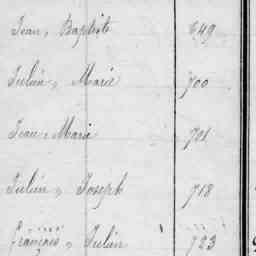 Jean, Baptiste 649
Julien, Marie 700
Jean, Marie 701
Julien, Joseph 718
François, Julien 723